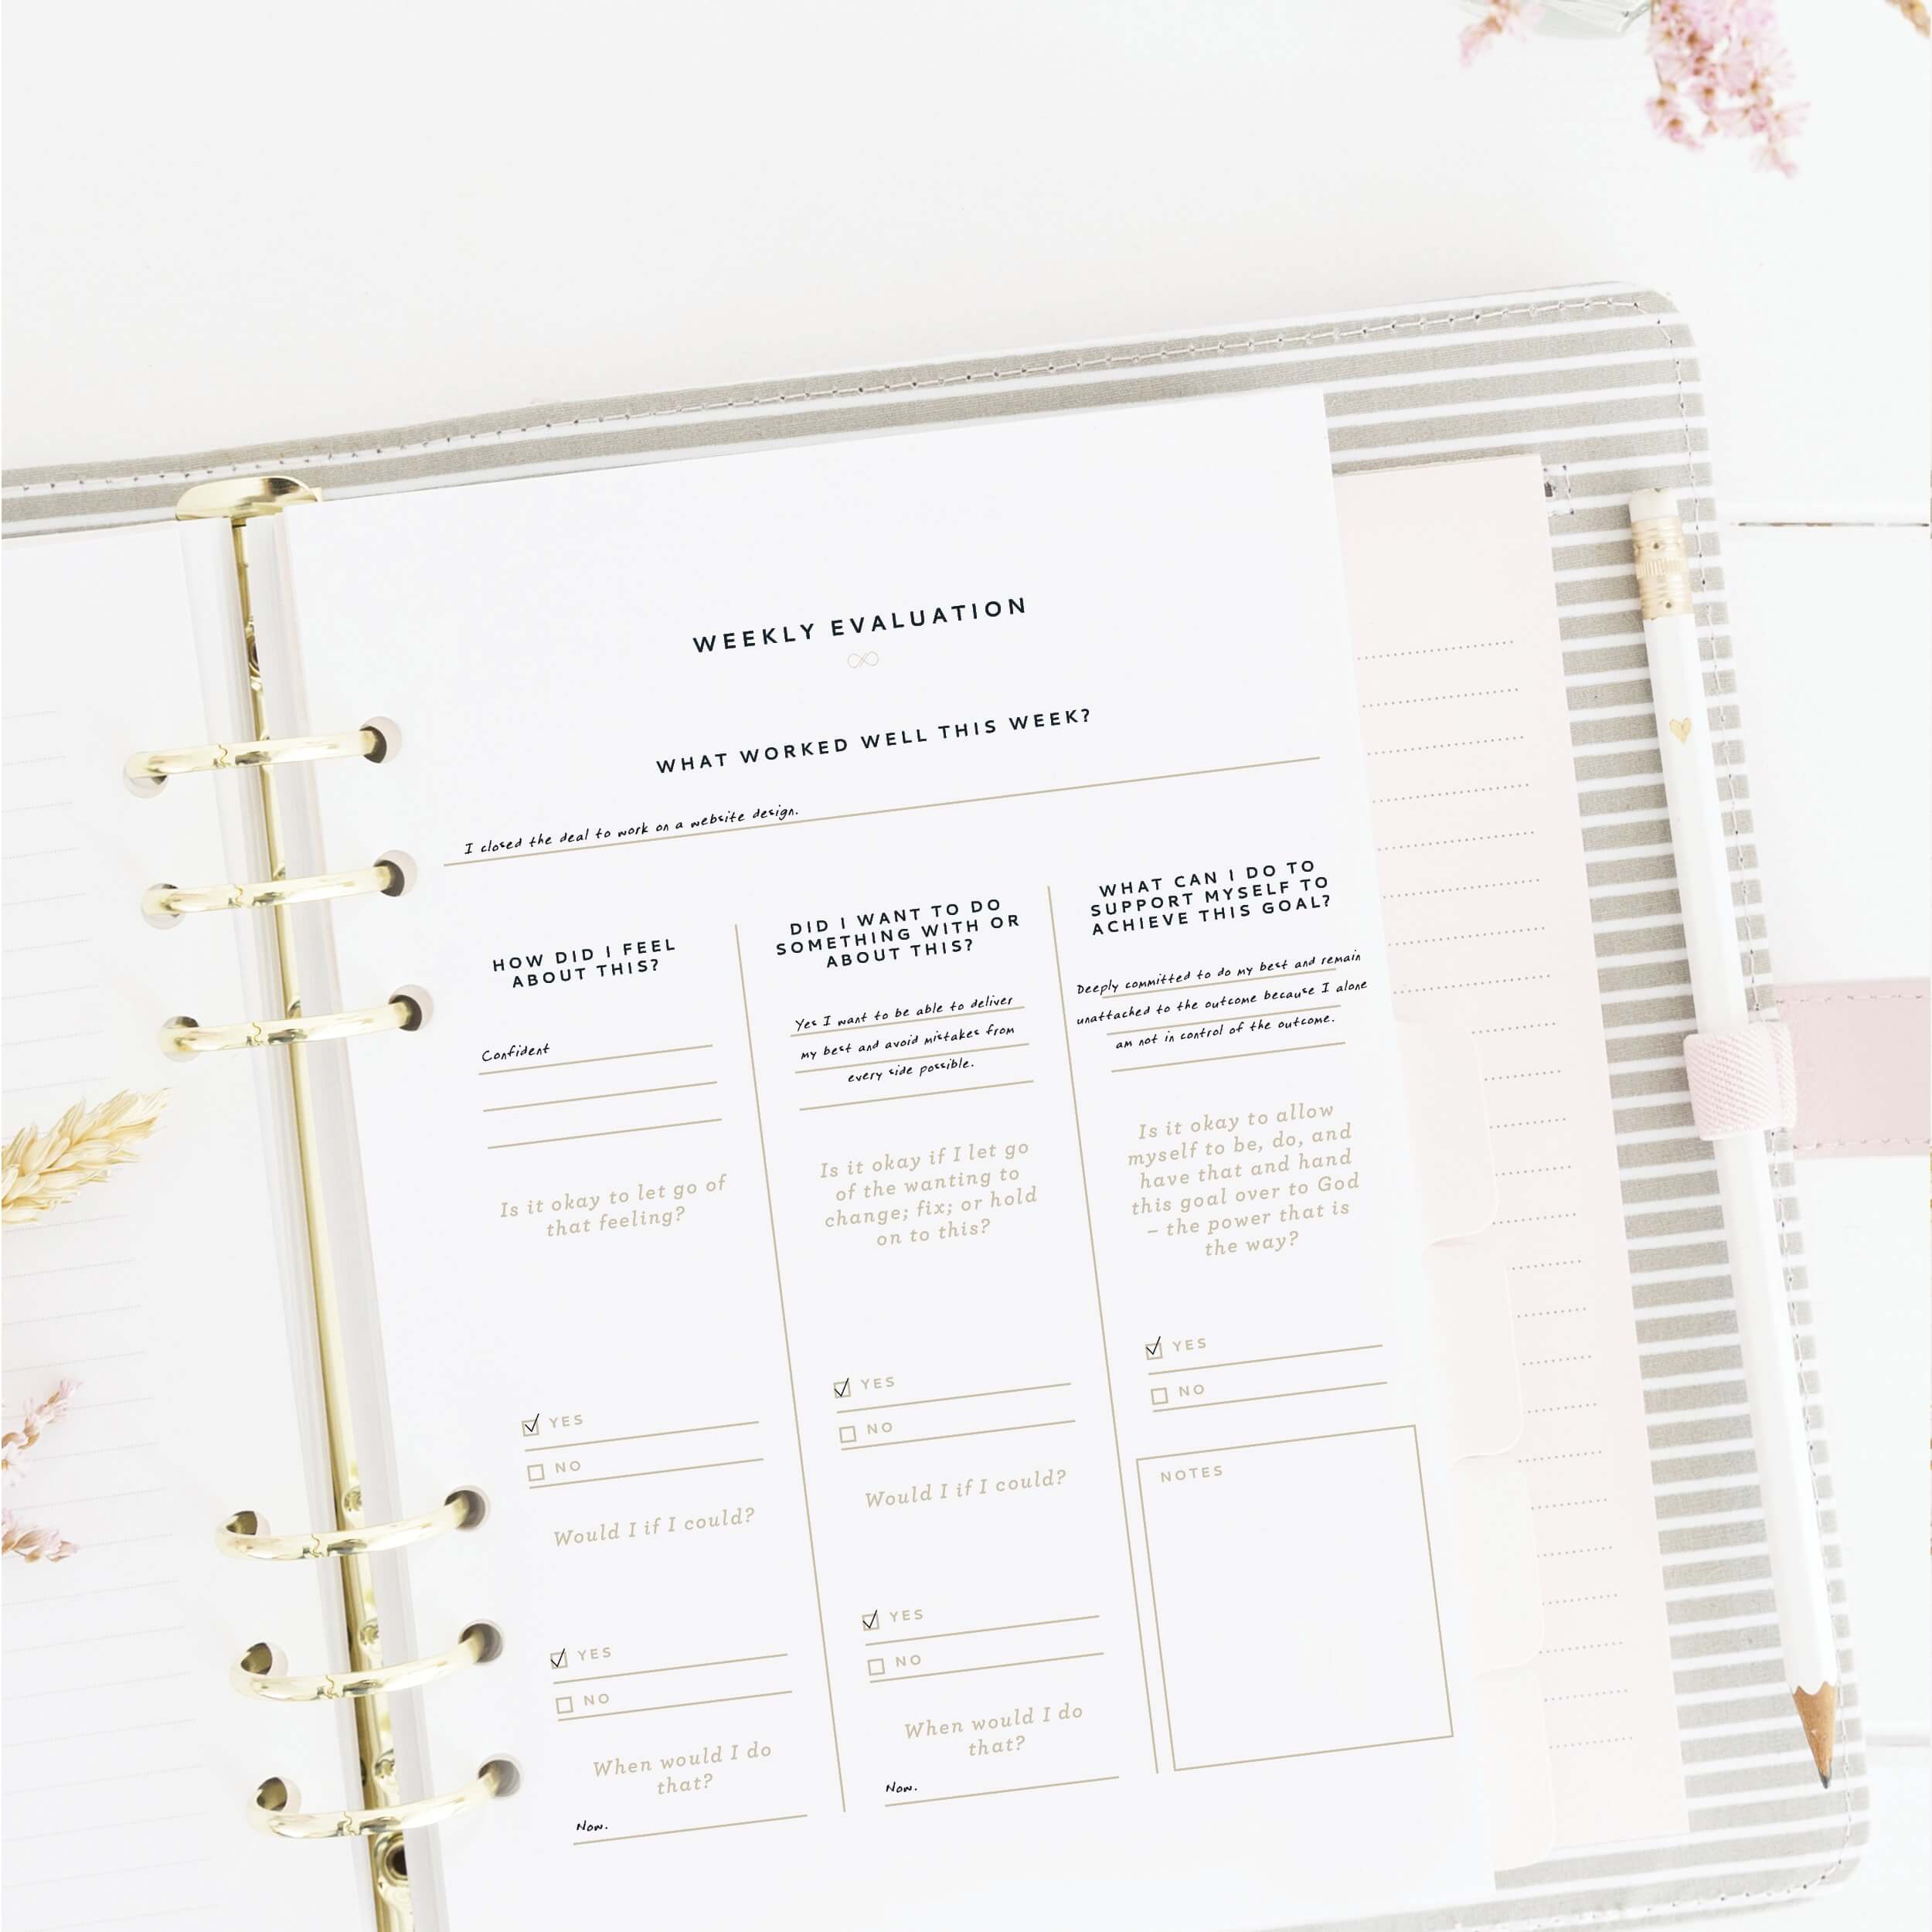 WEEKLY EVALUATION
WHAT WORKED WELL THIS WEEK?
I closed the deal to work on a website design.
HOW DID I FEEL
ABOUT THIS?
Confident
Is it okay to let go of
that feeling?
YES
NO
Would I if I could?
YES
NO
When would I do
that?
Now.
DID I WANT TO DO
SOMETHING WITH OR
ABOUT THIS?
Yes I want to be able to deliver
my best and avoid mistakes from
every side possible.
Is it okay if I let go
of the wanting to
change; fix; or hold
on to this?
YES
NO
Would I if I could?
YES
NO
When would I do
that?
Now.
WHAT CAN I DO TO
SUPPORT MYSELF TO
ACHIEVE THIS GOAL?
Deeply committed to do my best and remain
unattached to the outcome because I alone
am not in control of the outcome.
Is it okay to allow
myself to be, do, and
have that and hand
this goal over to God
– the power that is
the way?
YES
NO
NOTES